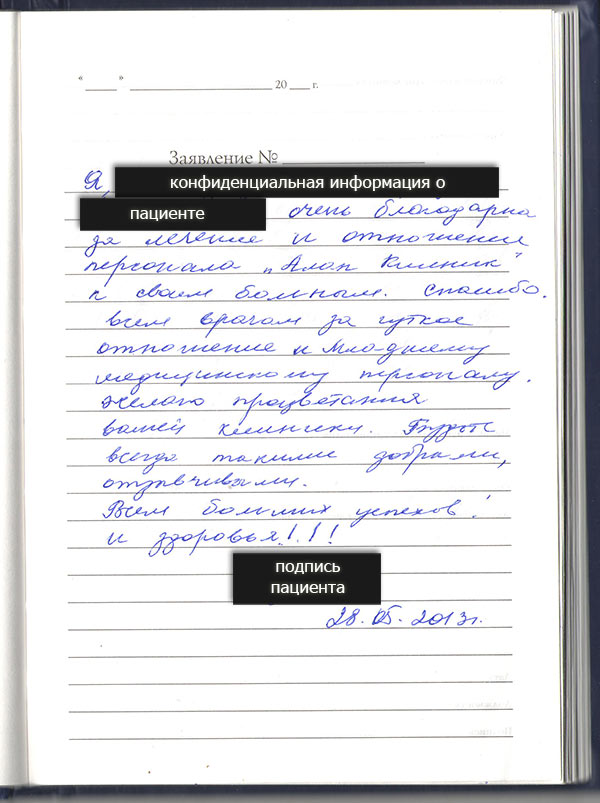 « ____ » ____________________ 20 ___ г.
Заявление № ____________________
Я, конфиденциальная информация о
пациенте очень благодарна
за лечение и отношение
персонала „Алан Клиник“
к своем больным. Спасибо.
всем врачам за чуткое
отношение и младшему
медицинскому персоналу.
Желаю процветания
вашей клиники. Будьте
всегда такими добрыми,
отзывчивыми.
Всем больших успехов!
и здоровья!!!
подпись
пациента
28.05.2013г.